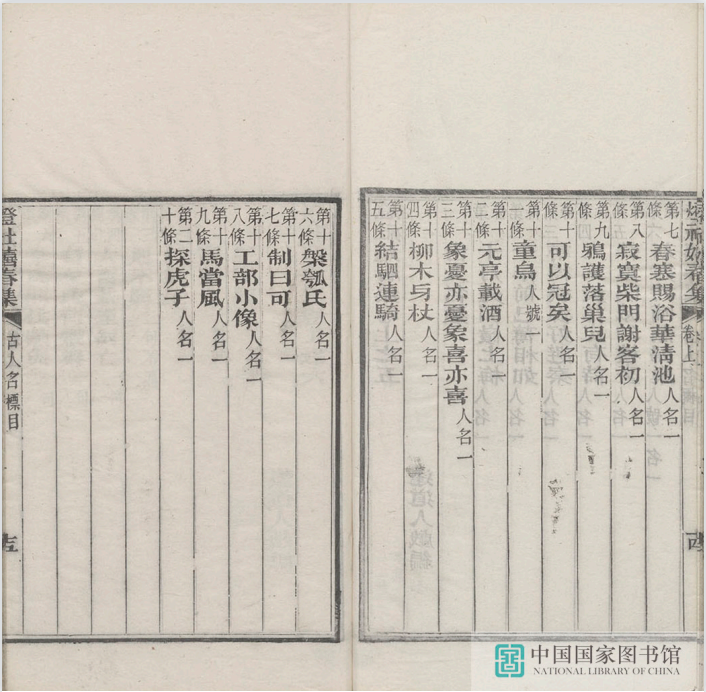 嬉春集 卷上
第七條 春寒賜浴華清池 人名一
第八條 寂寞柴門謝客初 人名一
第九條 鴉護落巢兒 人名一
第十條 可以冠矣 人名一
第十一條 童烏 人號一
第十二條 元亭載酒 人名一
第十三條 象憂亦憂象喜亦喜 人名一
第十四條 柳木杖 人名一
第十五條 結駟連騎 人名一
第十六條 槃瓠氏 人名一
第十七條 制曰可 人名一
第十八條 工部小像 人名一
第十九條 馬當風 人名一
第二十條 探虎子 人名一
燈社嬉春集 古人名標目 十五
中国国家图书馆
NATIONAL LIBRARY OF CHINA